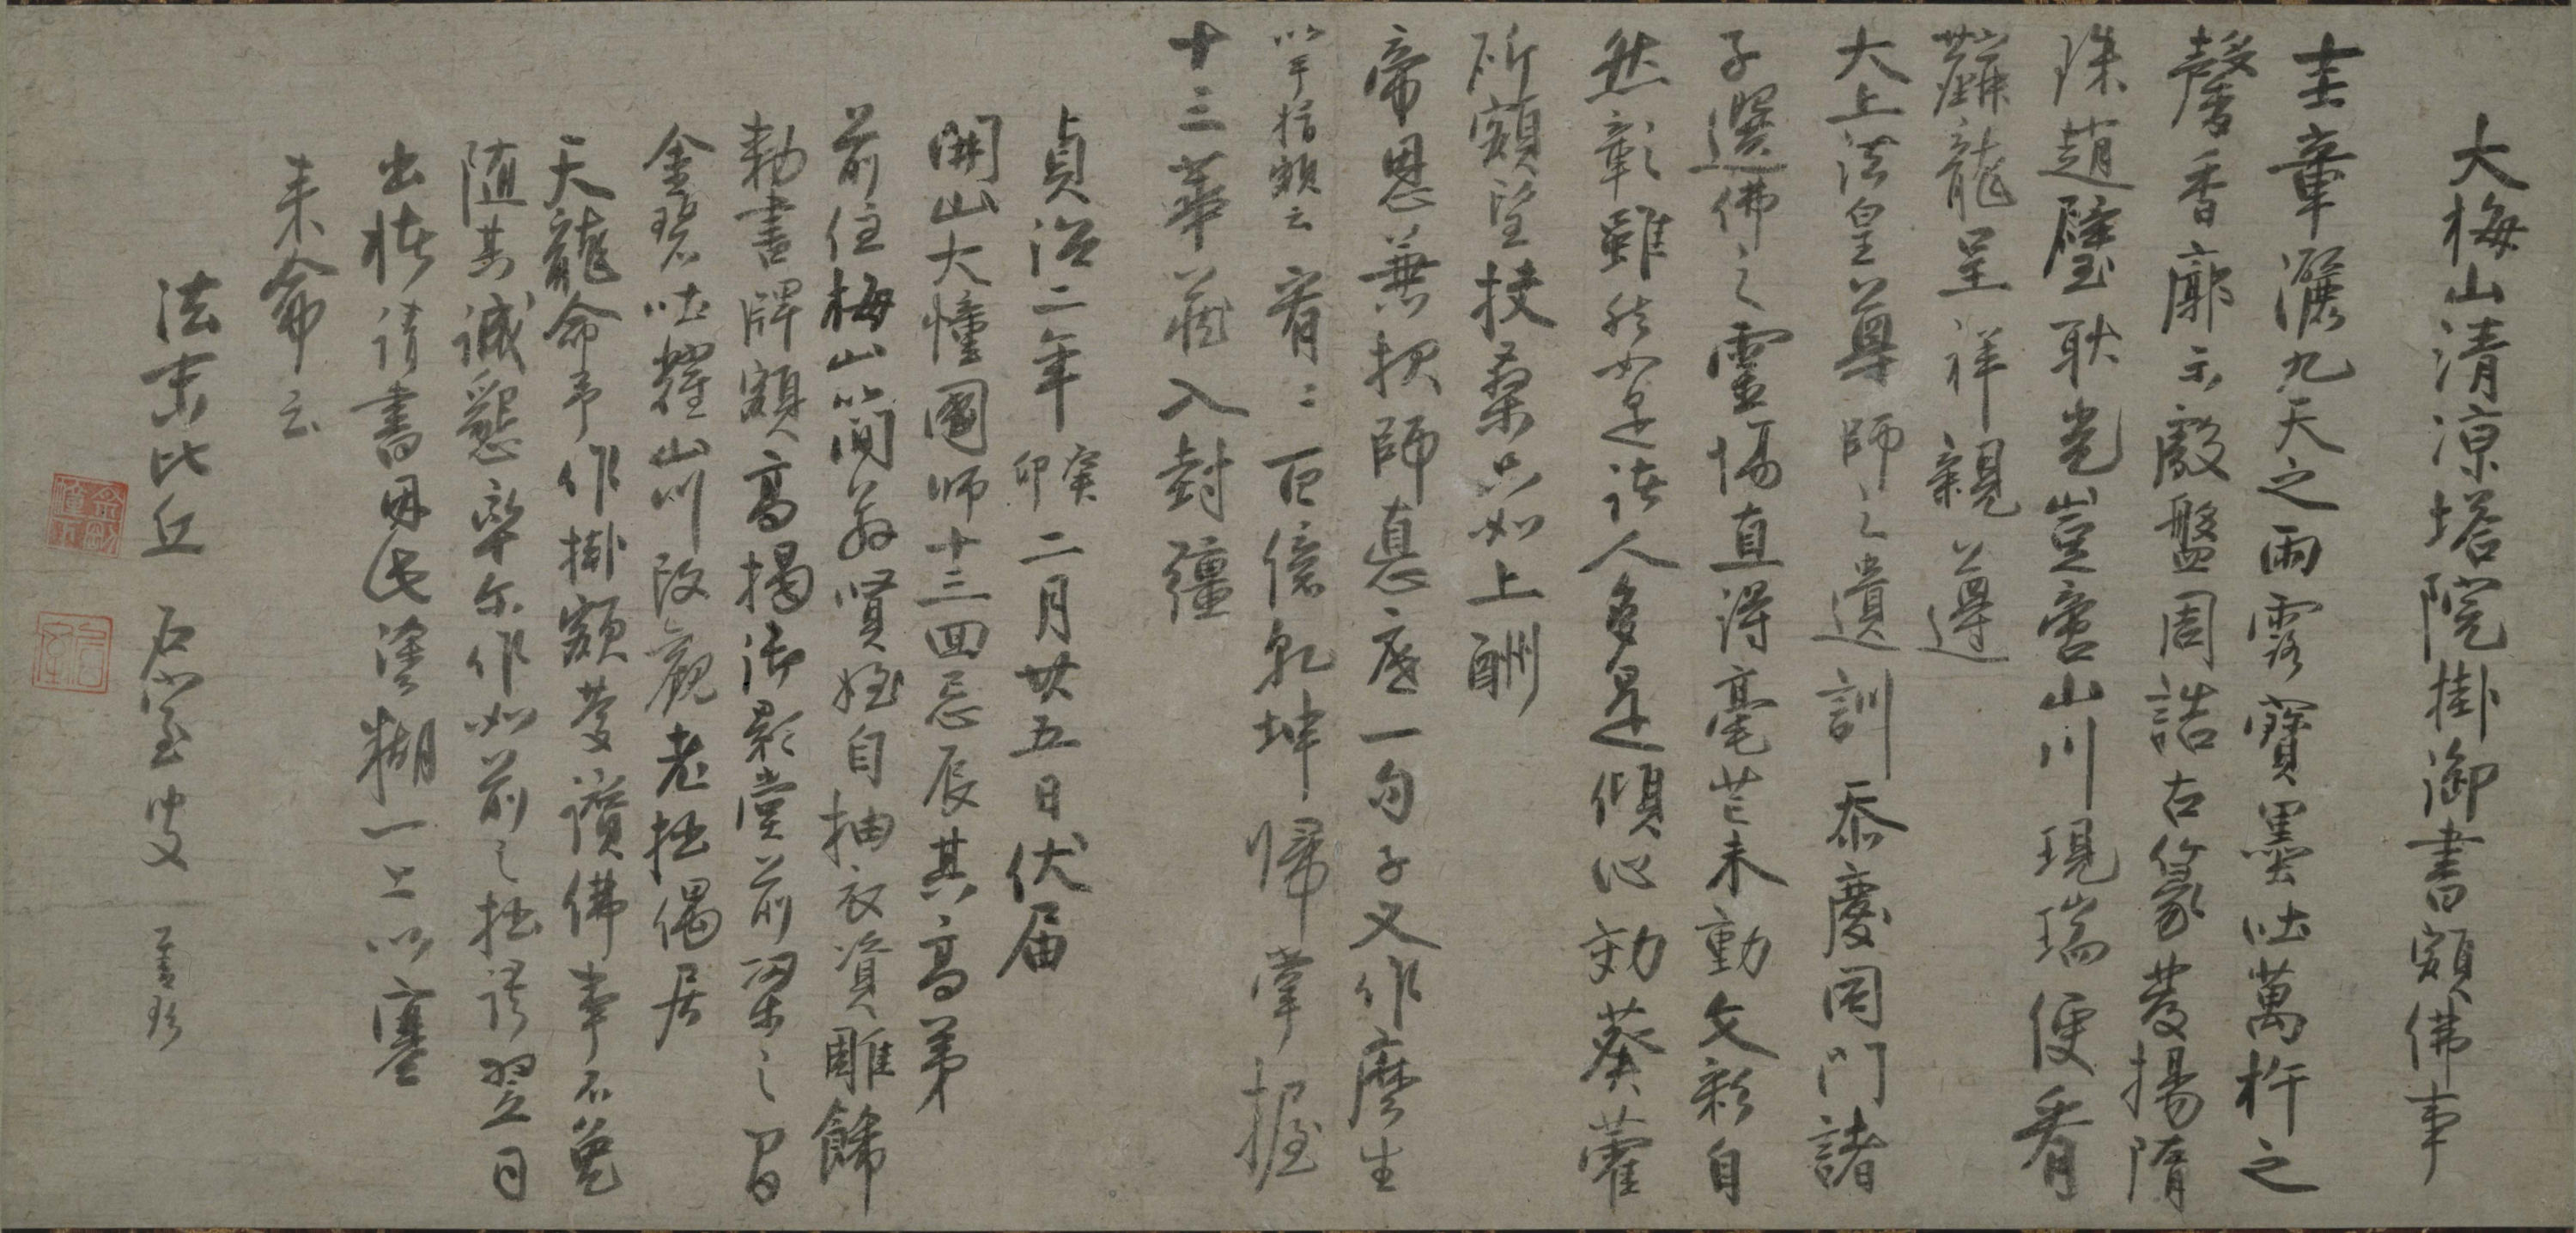 大梅山清凉塔院掛御書額佛事
圭章灑九天之雨露寶墨吐萬杵之
馨香廓示殷盤周誥古篆發揚隋
珠趙璧耿光豈啻山川現瑞便看
龍呈祥親遵
大上法皇尊師之遺訓忝慶同門諸
子選佛之靈場直得毫芒未動文彩自
然彰雖然如是諸人多是傾心効葵藿
斫額望扶桑只如上酬
帝恩兼報師悳底一句子又作麼生
以手指額云看々百億乾坤歸掌握
十三華蔵入封疆
貞治二年癸卯二月廿五日伏届
開山大幢國师十三回忌辰其高弟
前住梅山簡翁賢姪自抽衣資雕餙
勅書牌額高揭御影堂前梁之間
金碧吐耀山川改觀老拙偶居
天龍命予作掛額慶讃佛事不免
随其誠懇率尓作如前之拙語翌日
出楮請書因此塗糊一上以塞
来命云
法末比丘 石室叟 善玖